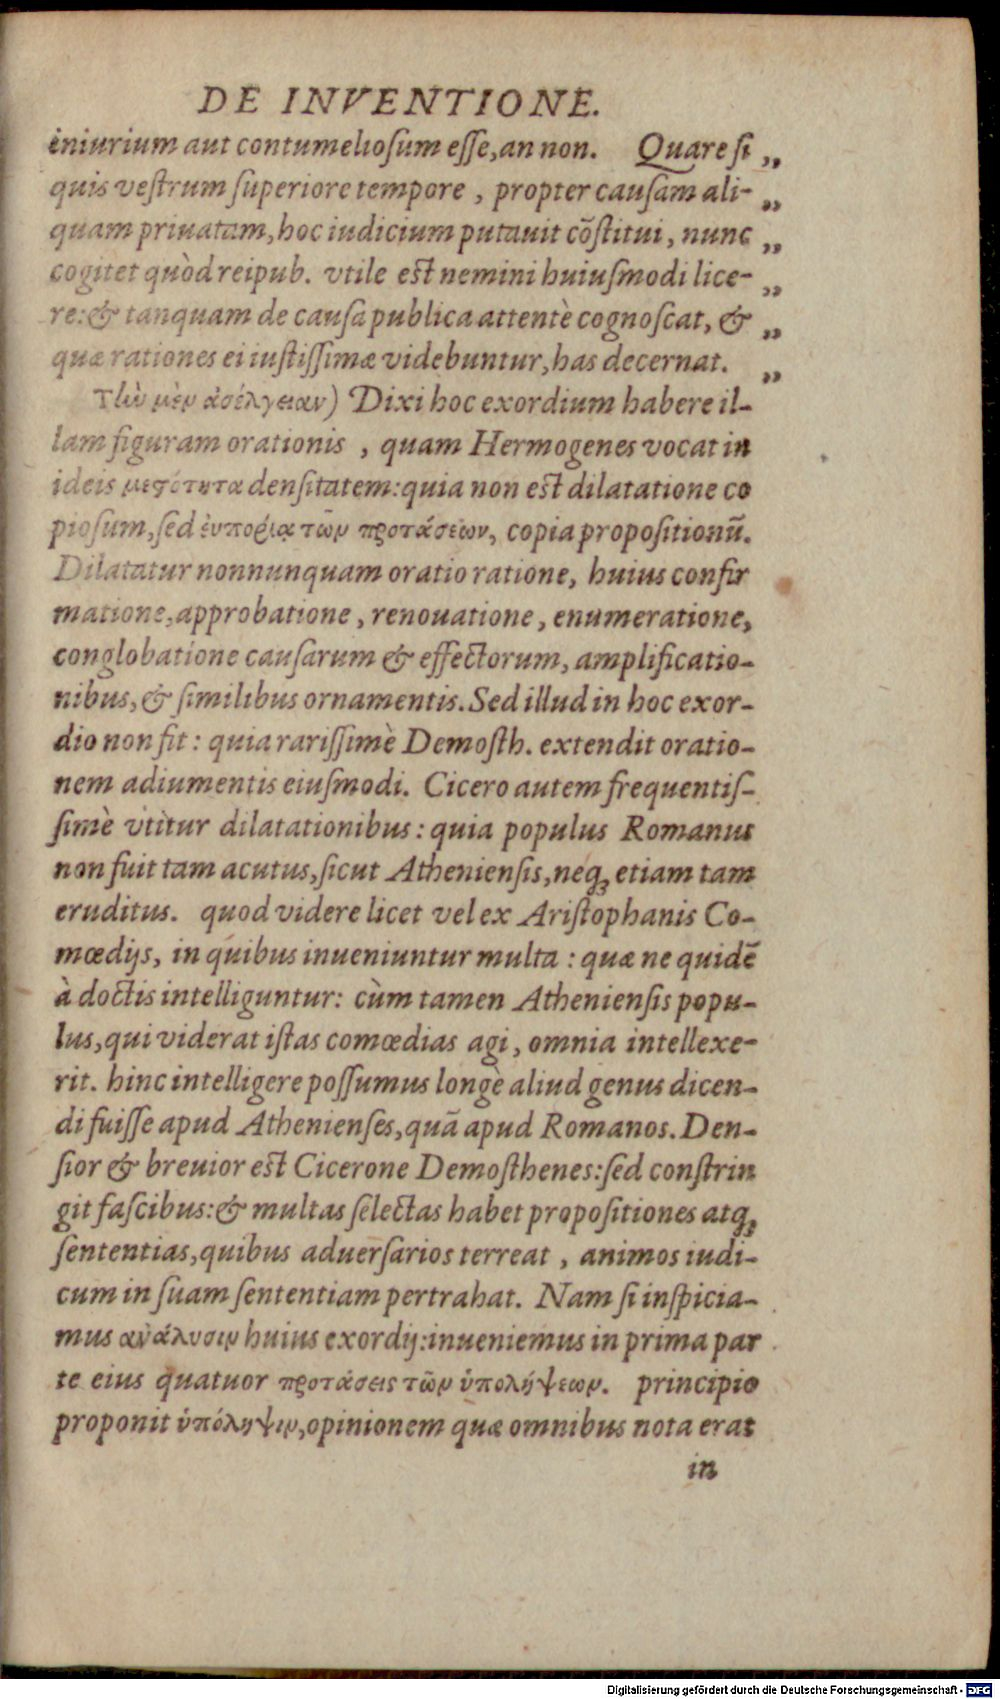 DE INVENTIONE.
iniurium aut contumeliosum esse, an non. Quare si „
quis vestrum superiore tempore, propter causam ali- „
quam priuatam, hoc iudicium putauit cōstitui, nunc „
cogitet quòd reipub. vtile est nemini huiusmodi lice- „
re: & tanquam de causa publica attentè cognoscat, & „
quæ rationes ei iustissimæ videbuntur, has decernat. „
Τὴν μὲν ἀσέλγειαν) Dixi hoc exordium habere il-
lam figuram orationis, quam Hermogenes vocat in
ideis μεσότητα densitatem: quia non est dilatatione co
piosum, sed ἐυπορίᾳ τῶν προτάσεων, copia propositionū.
Dilatatur nonnunquam oratio ratione, huius confir
matione, approbatione, renouatione, enumeratione,
conglobatione causarum & effectorum, amplificatio-
nibus, & similibus ornamentis. Sed illud in hoc exor-
dio non fit: quia rarissimè Demosth. extendit oratio-
nem adiumentis eiusmodi. Cicero autem frequentis-
simè vtitur dilatationibus: quia populus Romanus
non fuit tam acutus, sicut Atheniensis, neq; etiam tam
eruditus. quod videre licet vel ex Aristophanis Co-
mœdijs, in quibus inueniuntur multa: quæ ne quidē
à doctis intelliguntur: cùm tamen Atheniensis popu-
lus, qui viderat istas comœdias agi, omnia intellexe-
rit. hinc intelligere possumus longè aliud genus dicen-
di fuisse apud Athenienses, quā apud Romanos. Den-
sior & breuior est Cicerone Demosthenes: sed constrin
git fascibus: & multas selectas habet propositiones atq;
sententias, quibus aduersarios terreat, animos iudi-
cum in suam sententiam pertrahat. Nam si inspicia-
mus ανάλυσιν huius exordij: inueniemus in prima par
te eius quatuor προτάσεις τῶν ὑπολήψεων. principio
proponit ὑπόληψιν, opinionem quæ omnibus nota erat
in
Digitalisierung gefördert durch die Deutsche Forschungsgemeinschaft - DFG